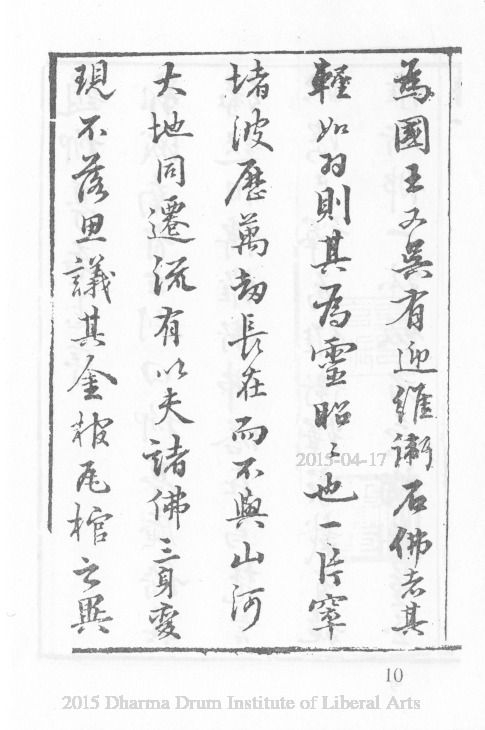 為國王又吳有迎維衛石佛者其
輕如羽則其為靈昭〻也一片窣
堵波歷萬劫長在而不與山河
大地同遷流有以夫諸佛三身變
現不落思議其金棺瓦棺之異
10
2015-04-17
2015 Dharma Drum Institute of Liberal Arts